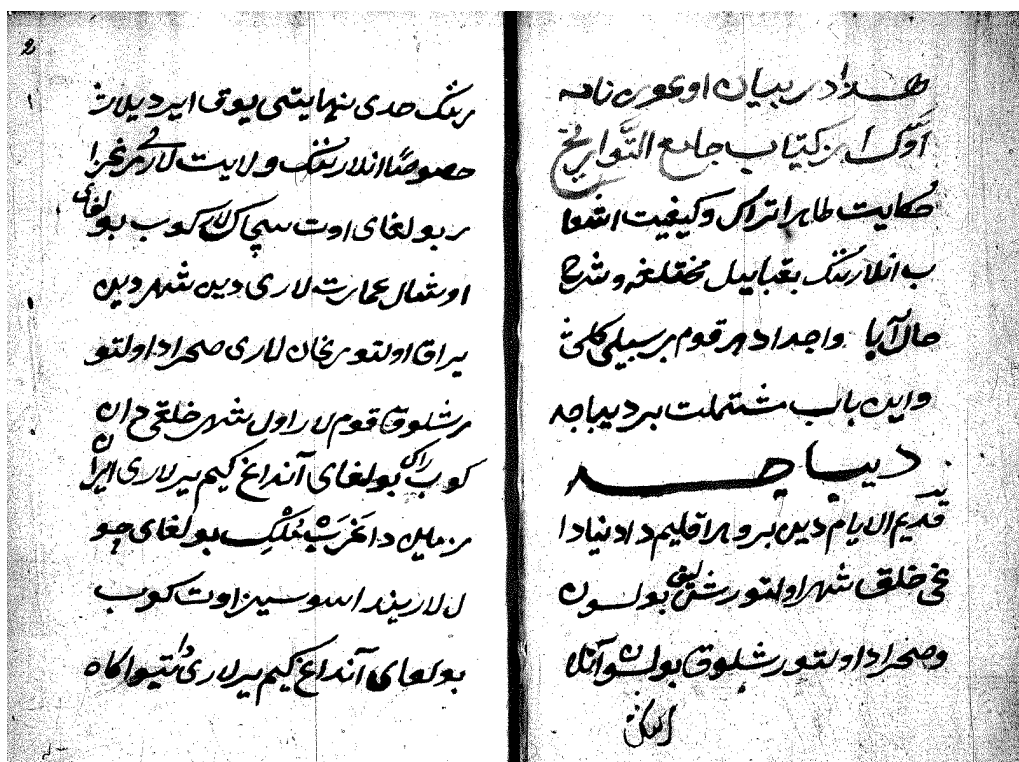 هذا در بیان اوغوز نامه
اول از کتاب جامع التّواریخ
حکایت ظاهر اتراک و کیفیت انشعا
ب انلارننک بقبایل مختلفه و شرح
حال آبا واجداد هر قوم بر سبیلی کلی
واین باب مشتملت بر دیباجه
دیباجه
قدیم الایام دین برو هر اقلیم دا دنیادا
غی خلقی شهر اولتورشلیغ بولسون
وصحرادا اولتورشلوق بولسون آنلا
رننک حدی نهایتی یوق ایردیلار
خصوصًا انلارننک ولایت لاری
ر بولغای اوت سچاک لار کوب بولغای
اوشال عمارت لاری دین شهر دین
یراق اولتورغان لاری صحرادا اولتو
رشلوق قوم لار اول شهر خلقی دان
کوبراک بولغای آنداغ کیم یرلاری ایران
زمین دا عَرَب مُلک بولغای چو
ل لاریندا سوسیز اوت کوب
بولغای آنداغ کیم یرلاری